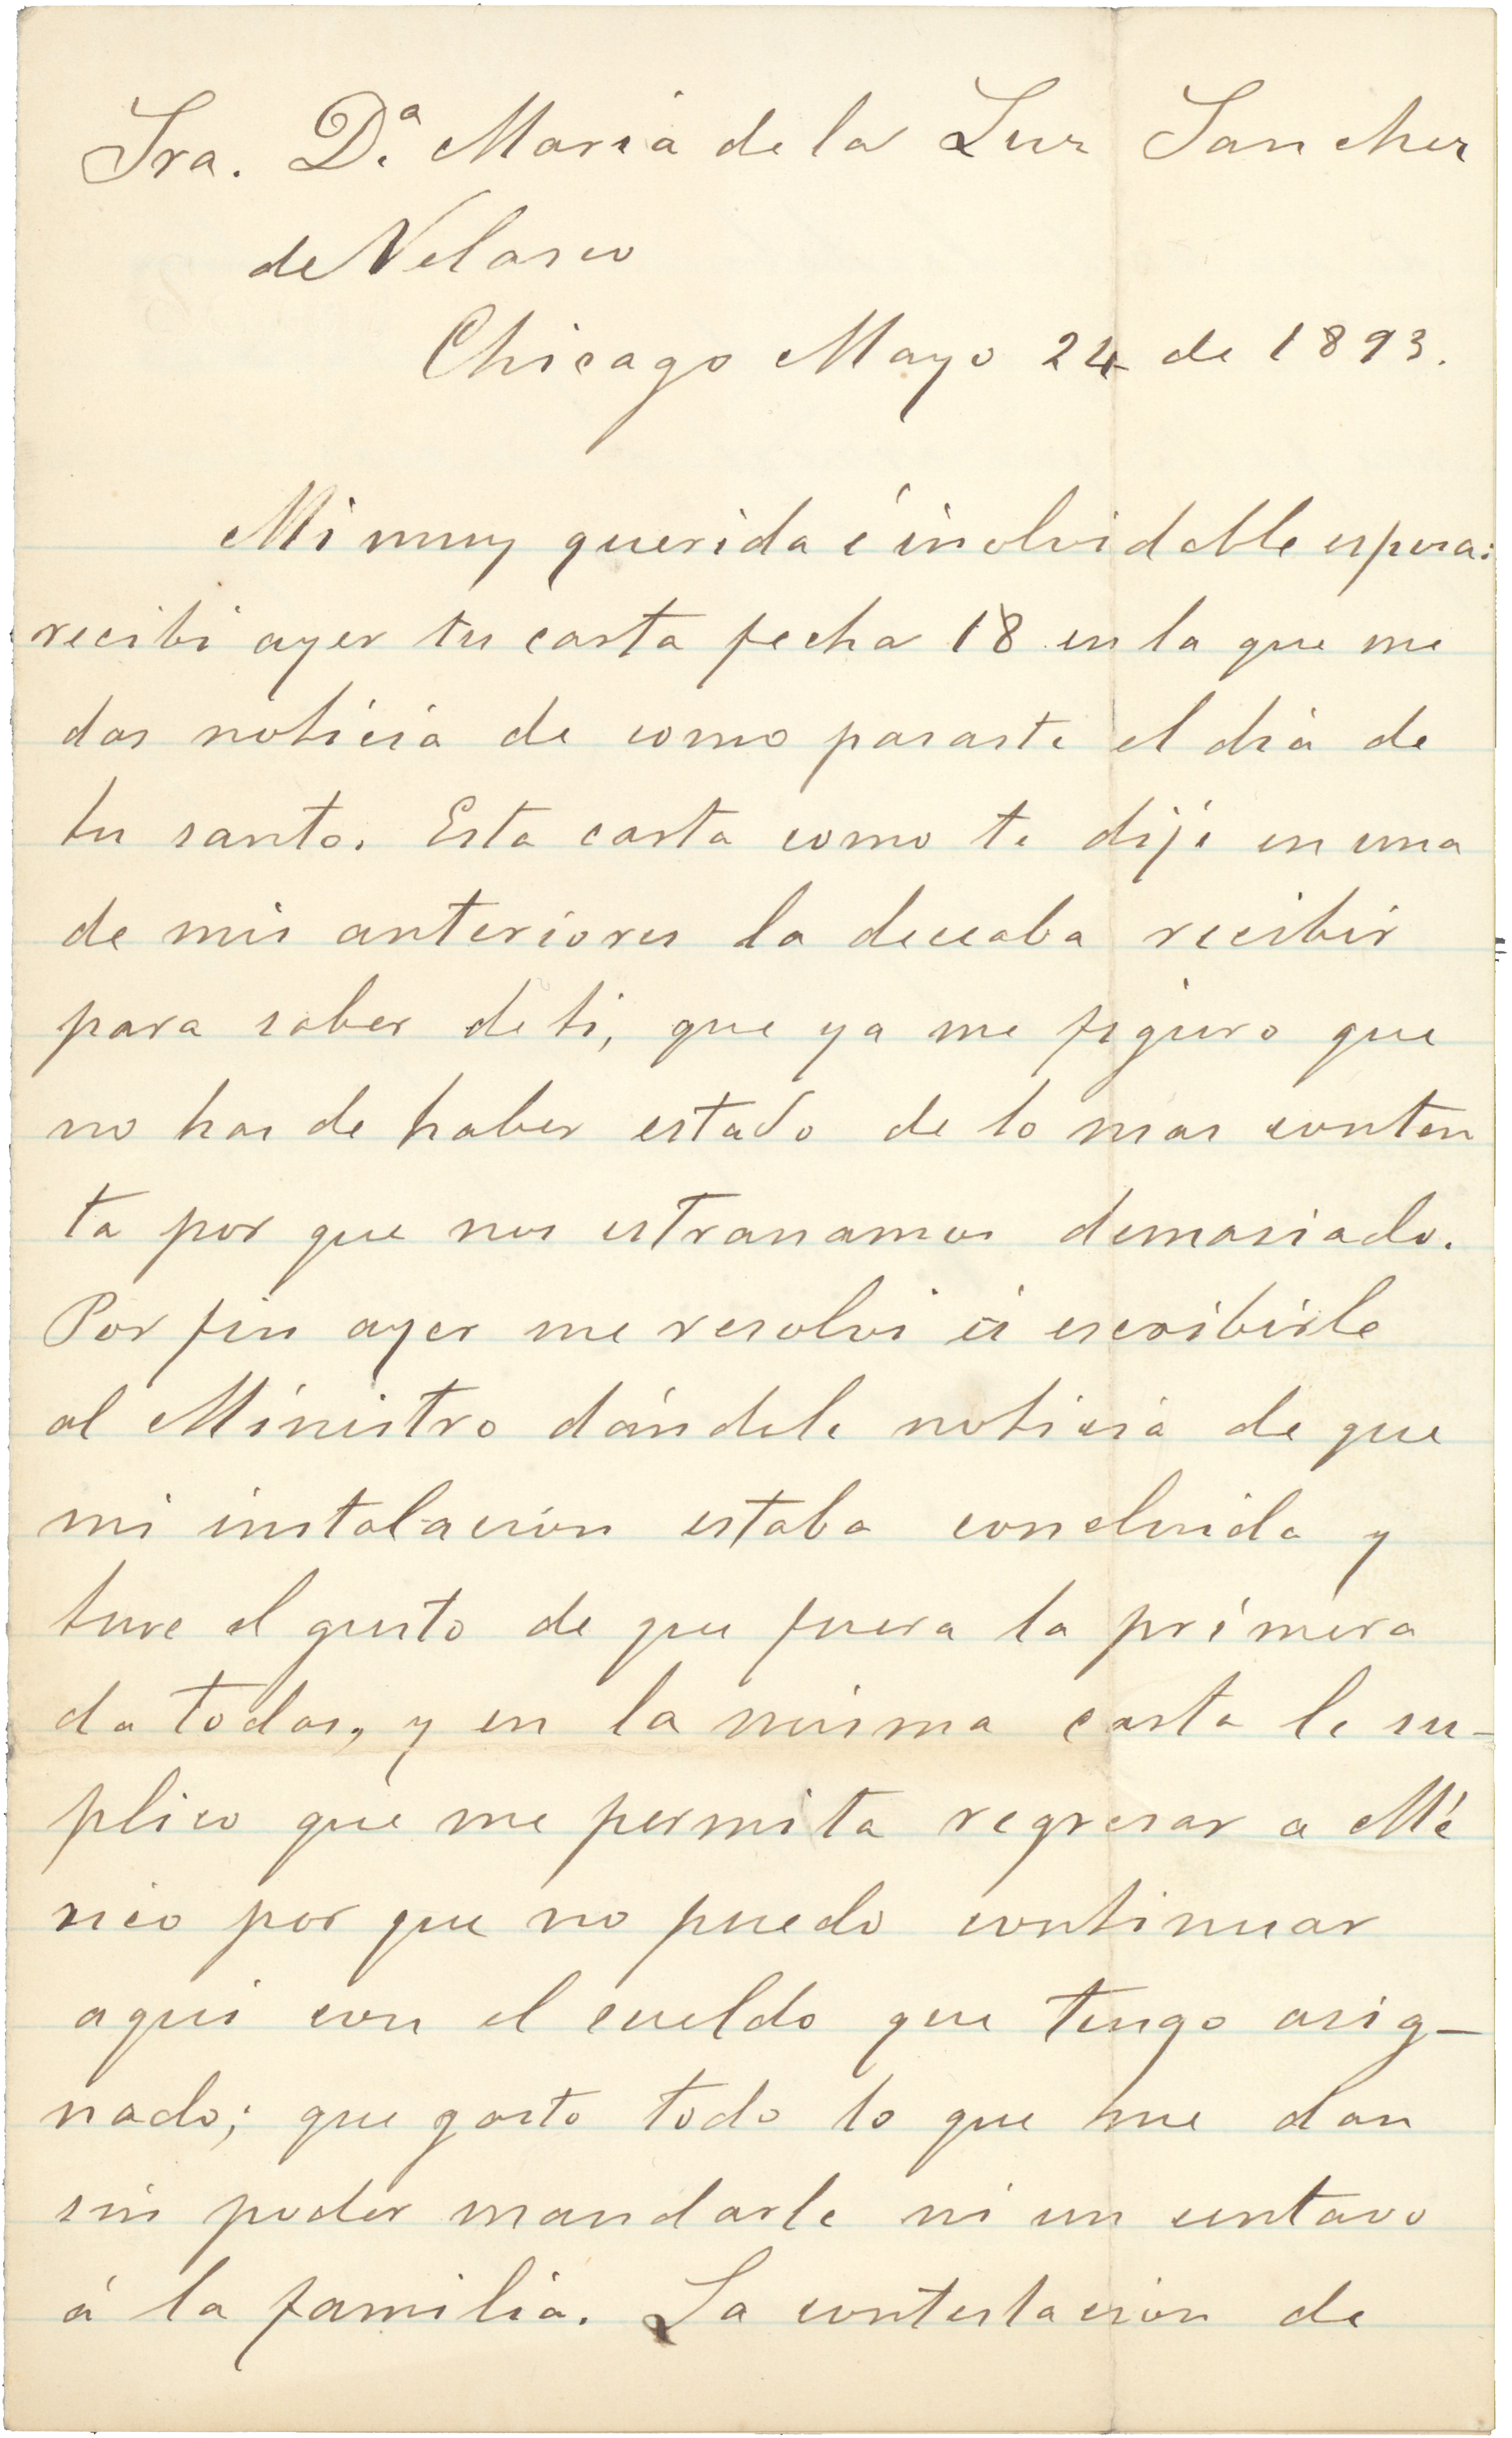 Sra. D.ª Maria de la Luz Sanchez
de Velasco
Chicago Mayo 24 de 1893.
Mi muy querida é inolvidable esposa:
recibi ayer tu carta fecha 18 en la que me
das noticia de como pasaste el dia de
tu santo. Esta carta como te dije en una
de mis anteriores la deceaba recibir
para saber de ti, que ya me figuro que
no has de haber estado de lo mas conten
ta por que nos estranamos demasiado.
Por fin ayer me resolvi á escribirle
al Ministro dándole noticia de que
mi instalacion estaba concluida y
tuve el gusto de que fuera la primera
da todas, y en la misma carta le su-
plico que me permita regresar a Mé
xico por que no puedo continuar
aqui con el sueldo que tengo asig-
nado; que gasto todo lo que me dan
sin poder mandarle ni un centavo
á la familia. La contestacion de